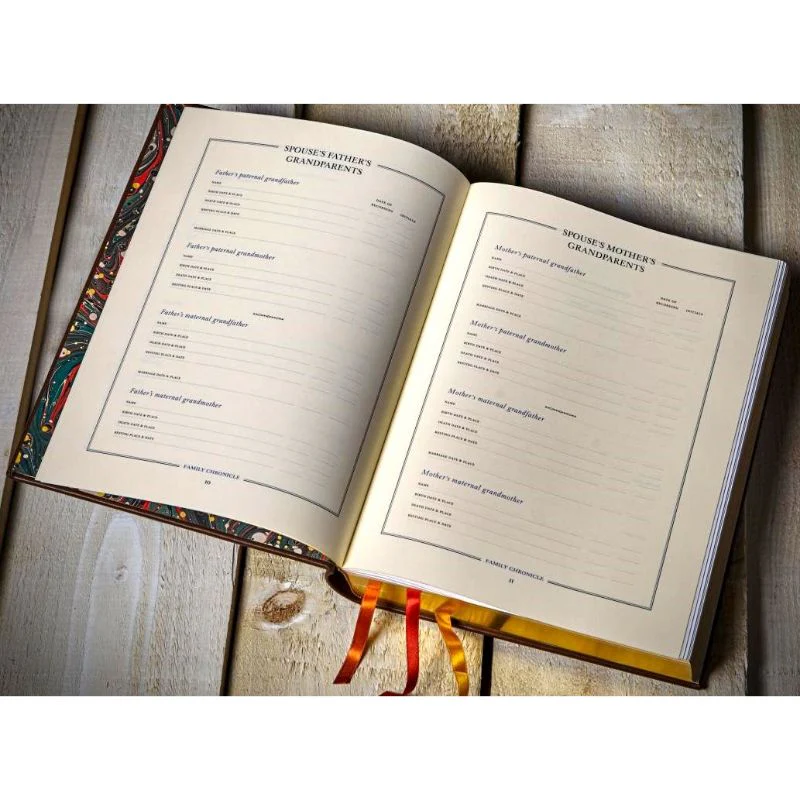 SPOUSE'S FATHER'S
GRANDPARENTS
Father's paternal grandfather
DATE OF
RECORDING INITIALS
NAME
BIRTH DATE & PLACE
DEATH DATE & PLACE
RESTING PLACE & DATE
MARRIAGE DATE & PLACE
Father's paternal grandmother
NAME
BIRTH DATE & PLACE
DEATH DATE & PLACE
RESTING PLACE & DATE
Father's maternal grandfather
NAME
BIRTH DATE & PLACE
DEATH DATE & PLACE
RESTING PLACE & DATE
MARRIAGE DATE & PLACE
Father's maternal grandmother
NAME
BIRTH DATE & PLACE
DEATH DATE & PLACE
RESTING PLACE & DATE
FAMILY CHRONICLE
10
SPOUSE'S MOTHER'S
GRANDPARENTS
Mother's paternal grandfather
DATE OF
RECORDING INITIALS
NAME
BIRTH DATE & PLACE
DEATH DATE & PLACE
RESTING PLACE & DATE
MARRIAGE DATE & PLACE
Mother's paternal grandmother
NAME
BIRTH DATE & PLACE
DEATH DATE & PLACE
RESTING PLACE & DATE
Mother's maternal grandfather
NAME
BIRTH DATE & PLACE
DEATH DATE & PLACE
RESTING PLACE & DATE
MARRIAGE DATE & PLACE
Mother's maternal grandmother
NAME
BIRTH DATE & PLACE
DEATH DATE & PLACE
RESTING PLACE & DATE
FAMILY CHRONICLE
11